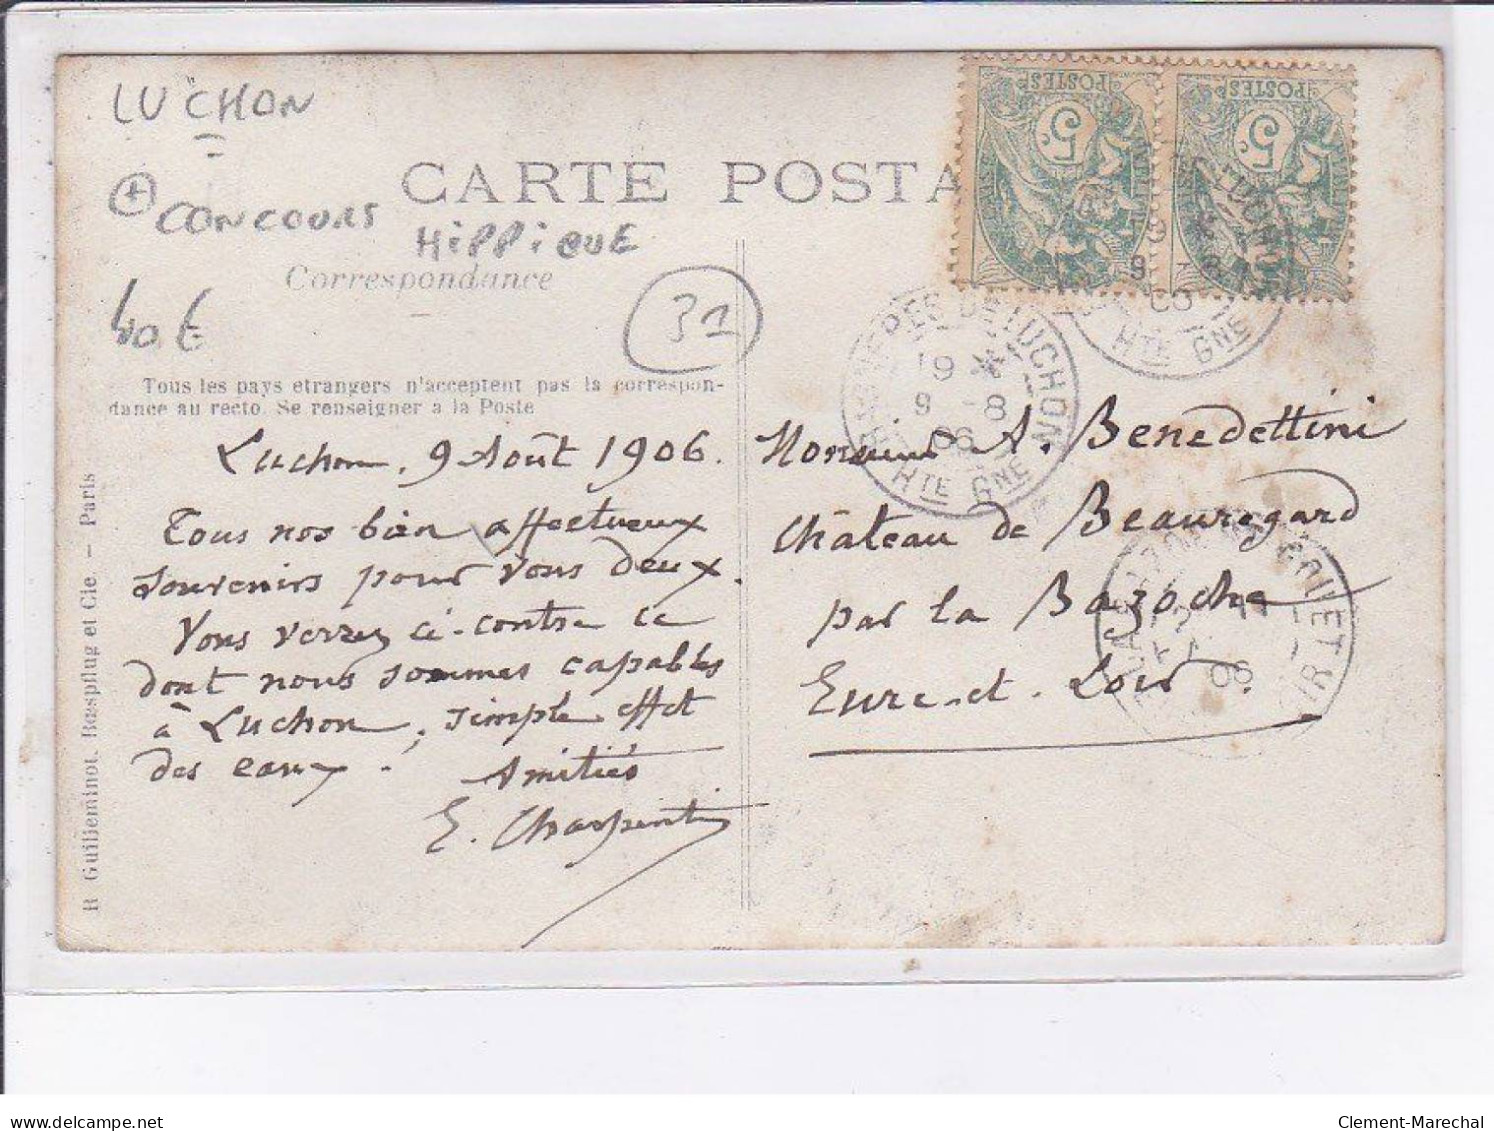 LUCHON
+
CONCOURS
HIPPIQUE
40 €
31
CARTE POSTA
Correspondance
Tous les pays etrangers n'acceptent pas la correspon-
dance au recto. Se renseigner a la Poste
POSTES
5c
POSTES
5c
DE LUCHON
9 -8
HTE GNE
BAGNERES DE LUCHON
19 *
9 -8
06
HTE GNE
Luchon, 9 Août 1906.
Tous nos bien affectueux
souvenirs pour vous deux.
Vous verrez ci-contre ce
dont nous sommes capables
à Luchon, simple effet
des eaux.
Amitiés
E. Charpentier
Monsieur A. Benedettini
Château de Beauregard
par la Bazoche
Eure-et-Loir.
GOUET
06
R Guilleminot, Bœspflug et Cie. — Paris
delcampe.net
Clement-Marechal